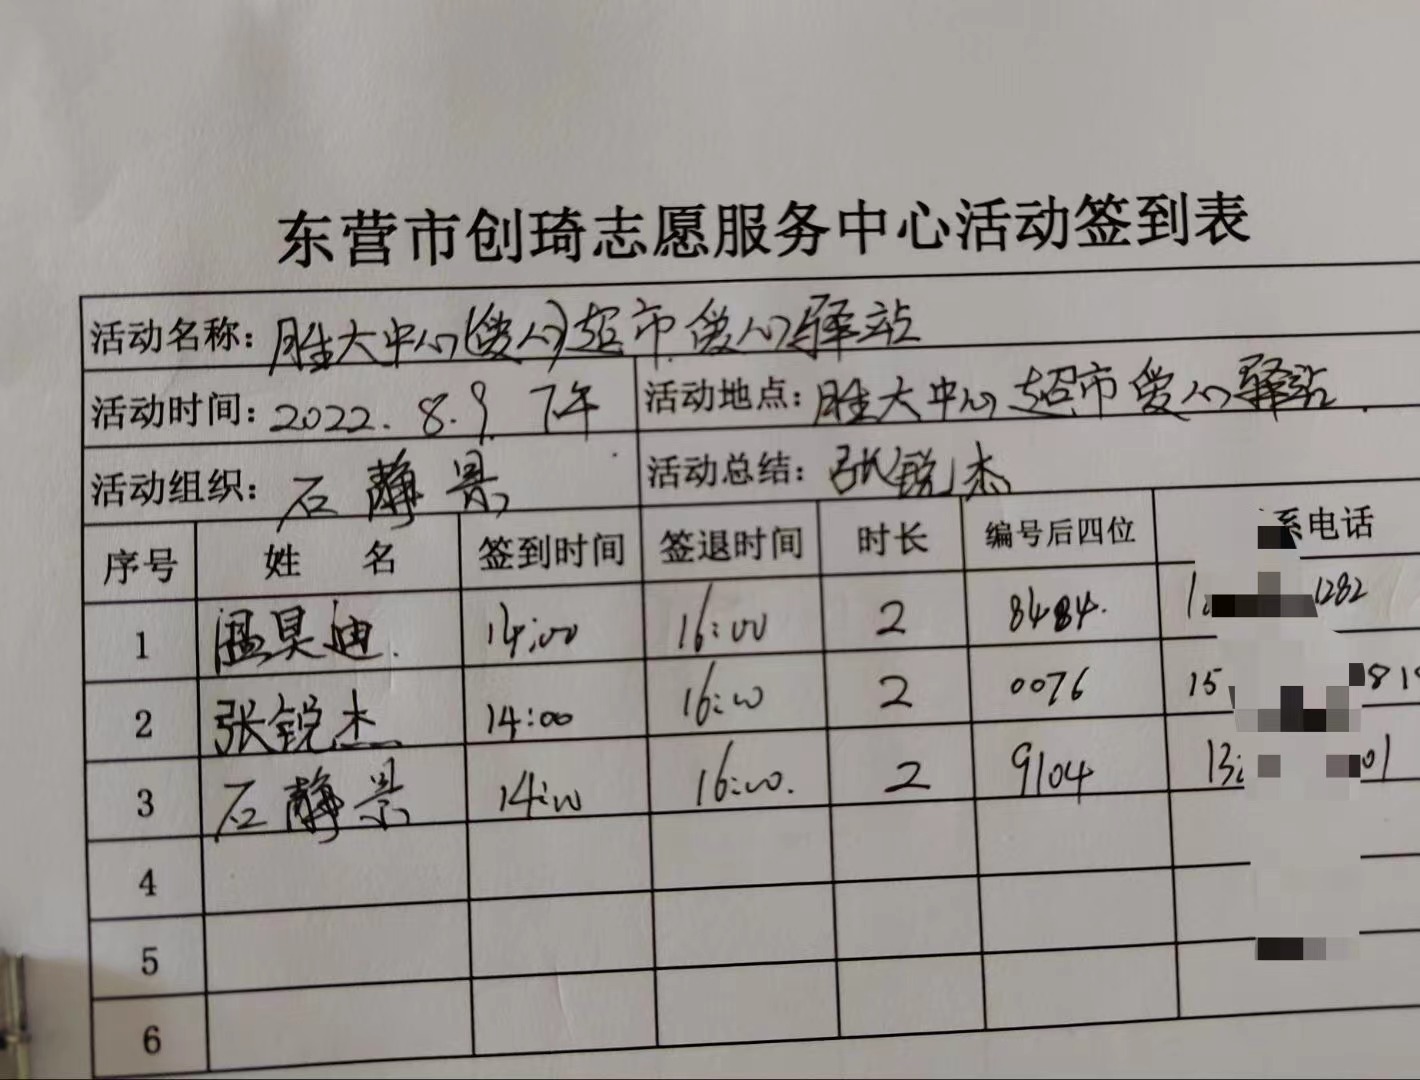 东营市创琦志愿服务中心活动签到表
活动名称：胜大中心(爱心)超市爱心驿站
活动时间：2022.8.9 下午 活动地点：胜大中心超市爱心驿站
活动组织：石静景 活动总结：张锐杰
序号 姓名 签到时间 签退时间 时长 编号后四位 系电话
1 温昊迪 14:00 16:00 2 8484 1 1282
2 张锐杰 14:00 16:00 2 0076 15 819
3 石静景 14:00 16:00 2 9104 13 01
4
5
6